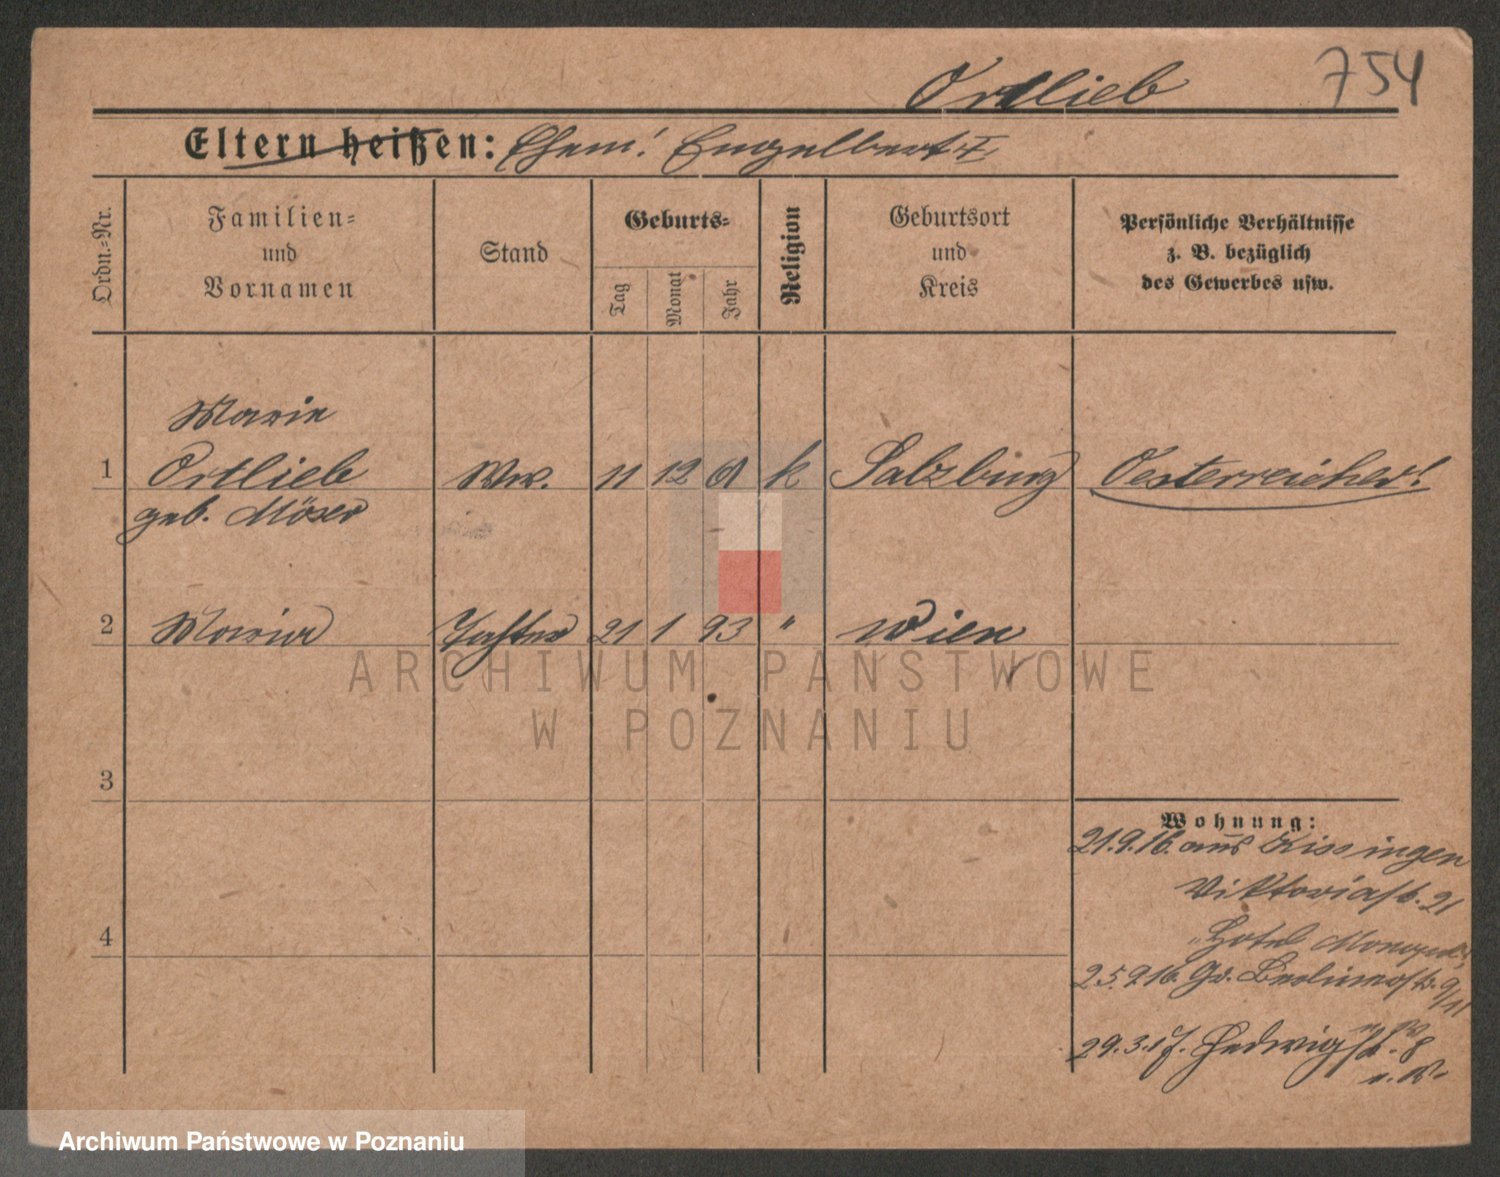 Ortlieb
754
Eltern heißen: Ehem: Engelbert †.
Ordn.-Nr.
Familien-
und
Vornamen
Stand
Geburts-
Tag
Monat
Jahr
Religion
Geburtsort
und
Kreis
Persönliche Verhältnisse
z. B. bezüglich
des Gewerbes usw.
Marie
1 Ortlieb Ww. 11 12 k Salzburg Oesterreicher!
geb. Möser
2 Maria Tochter 21 1 93 " Wien
ARCHIWUM PAŃSTWOWE
W POZNANIU
3
Wohnung:
21.9.16. aus Kissingen
Viktoriastr. 21
"Hotel Monopol"
4
25.9.16. Gr. Berlinerstr. 9/11
29.3.17. Hedwigstr. 8
Archiwum Państwowe w Poznaniu